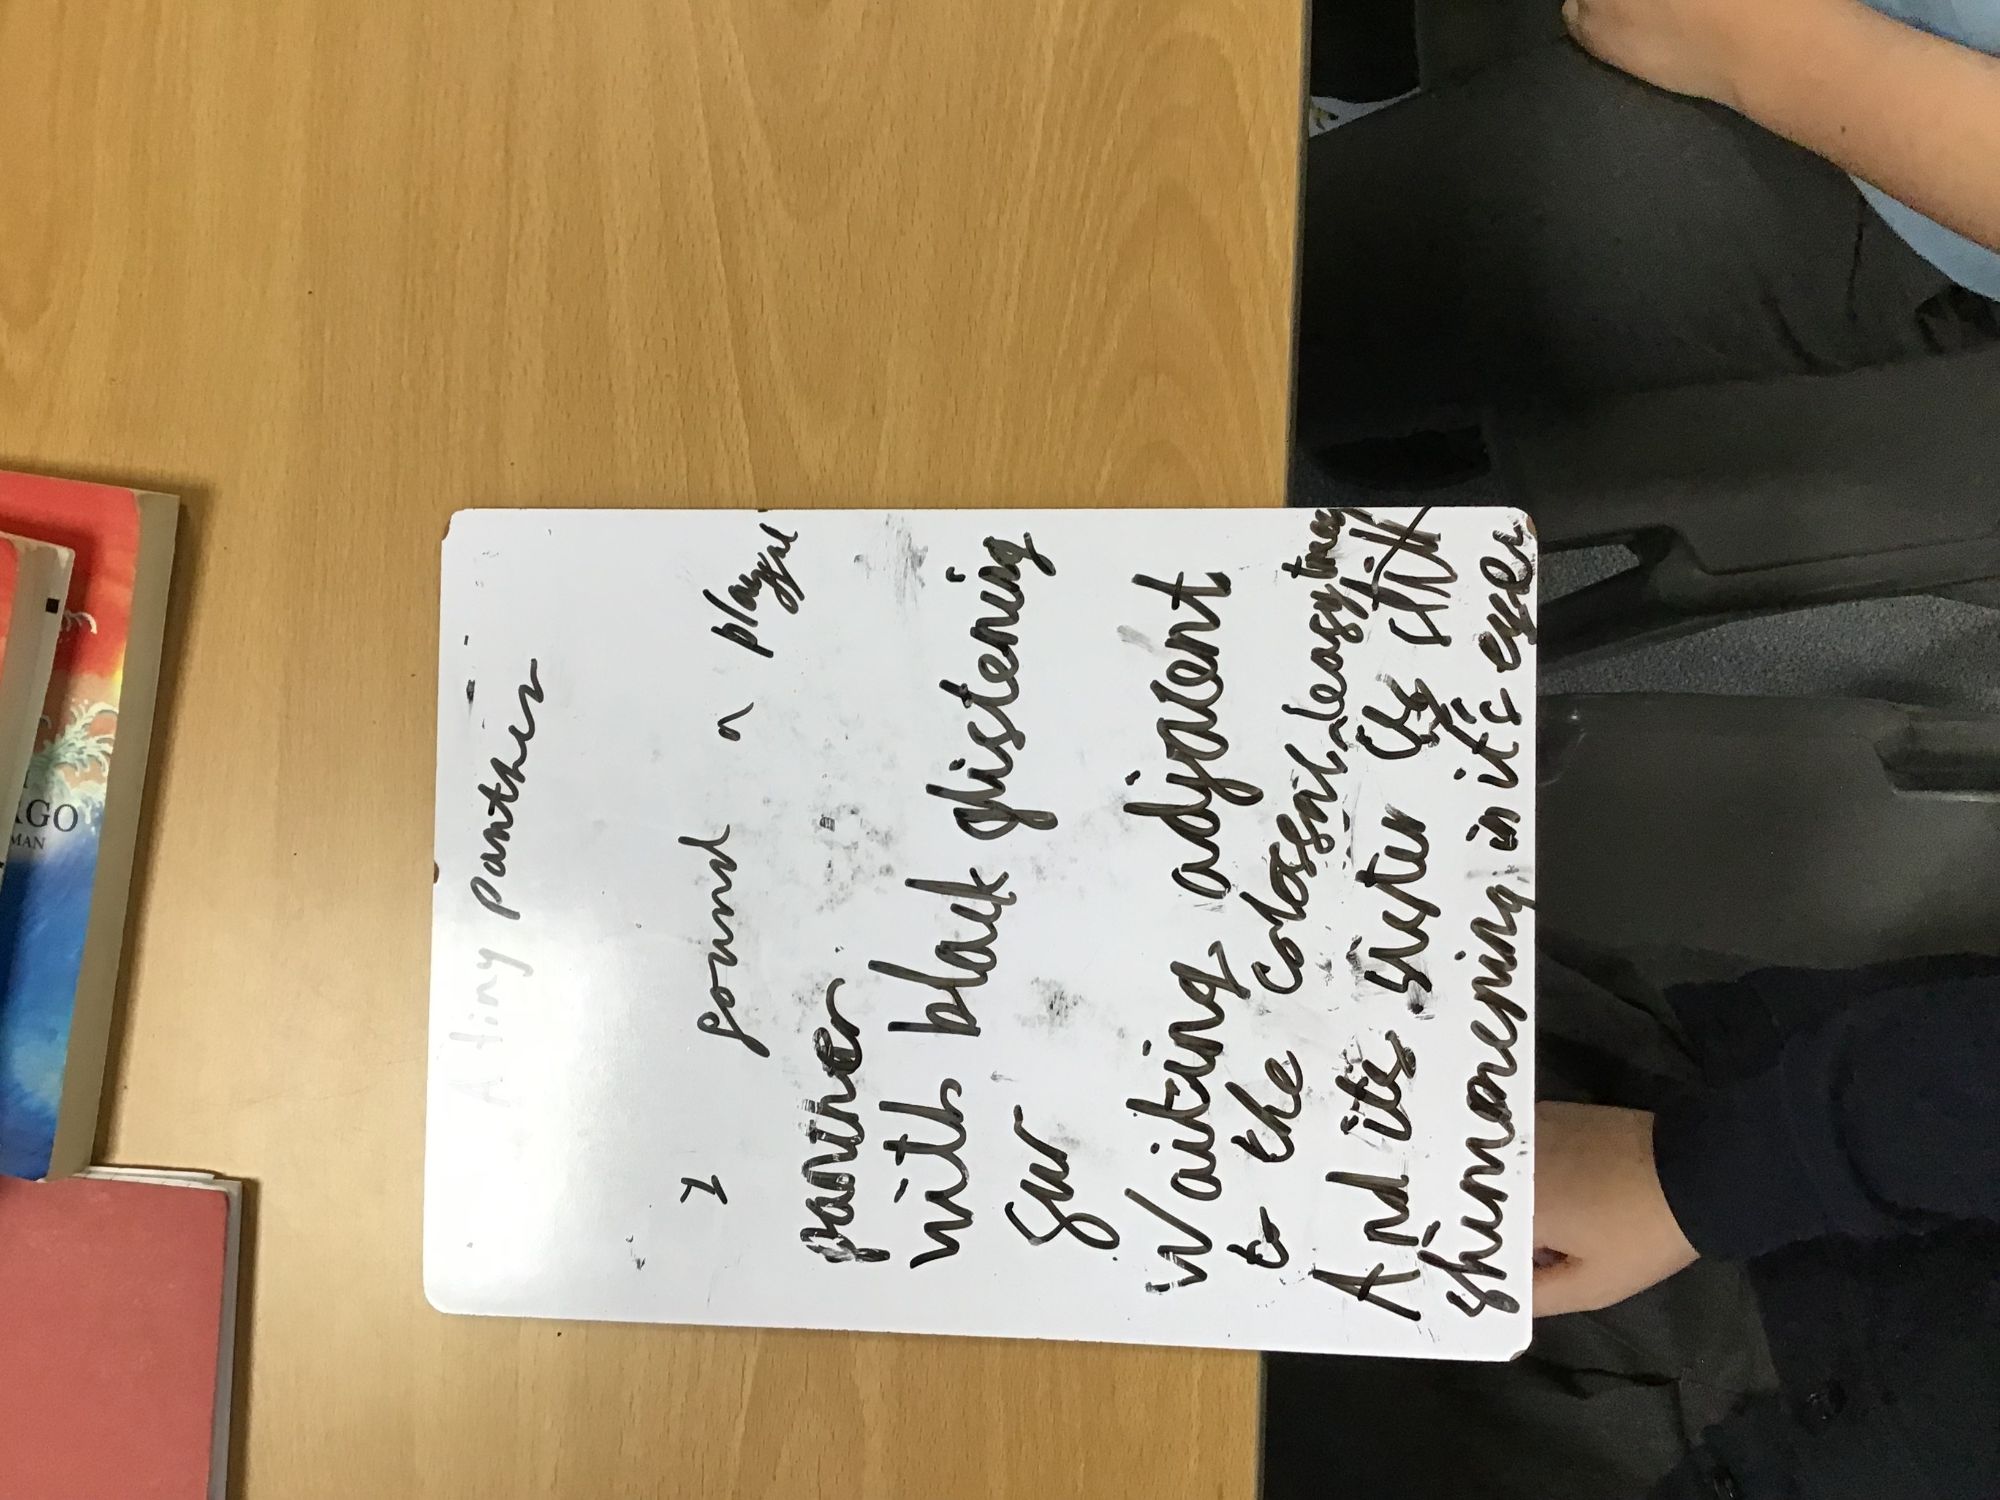 A tiny panther
I found a playful
panther
with black glistening
fur
Waiting adjacent
to the colossal leasy tree
And its sister
shimmering in it's eyes
KGO
MAN